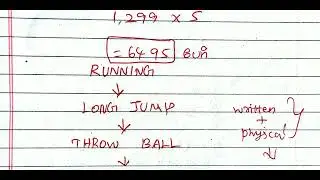 1,299 x 5
= 6495 Bun
RUNNING
↓
LONG JUMP
↓
THROW BALL
↓
written
+
physical
↓